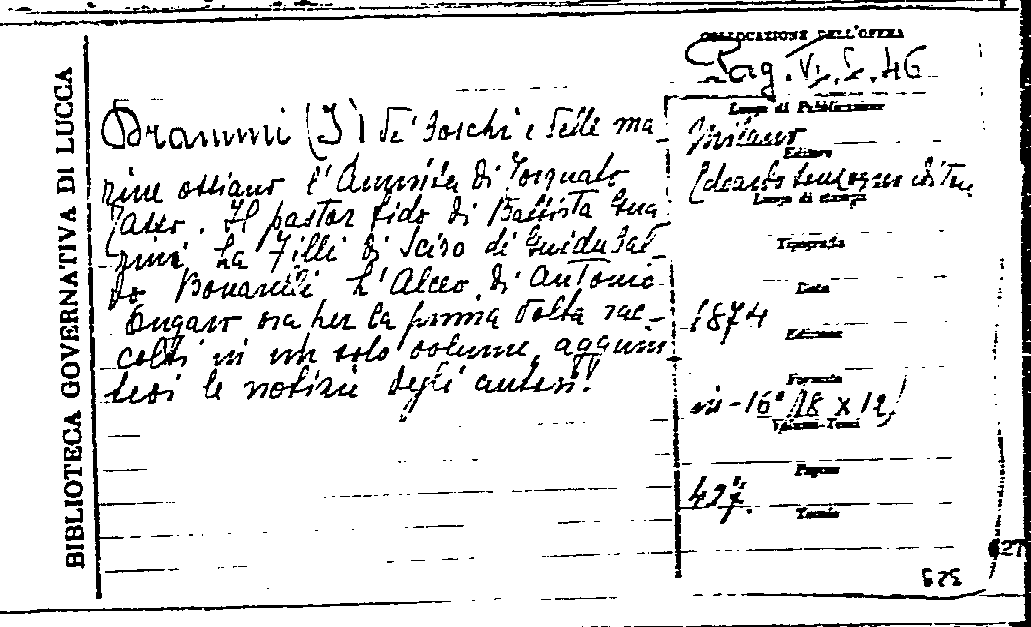 BIBLIOTECA GOVERNATIVA DI LUCCA
COLLOCAZIONE DELL'OPERA
Pag. VI. S. 46
Drammi (I) de' boschi e delle ma
rine ossiano l'Aminta di Torquato
Tasso. Il pastor fido di Battista Gua
rini La Filli di Sciro di Guidubal
do Bonarelli L'Alceo di Antonio
Ongaro ora per la prima volta rac-
colti in un solo volume, aggiun
tevi le notizie degli autori!
Luogo di Pubblicazione
Milano
Editore
Edoardo Sonzogno editore
Luogo di stampa
Tipografia
Data
1874
Edizione
Formato
in-16° (18 x 12)
Volumi-Tomi
Pagine
427.